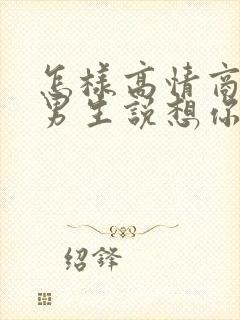 怎樣高情商
男生說想你
紹鋒